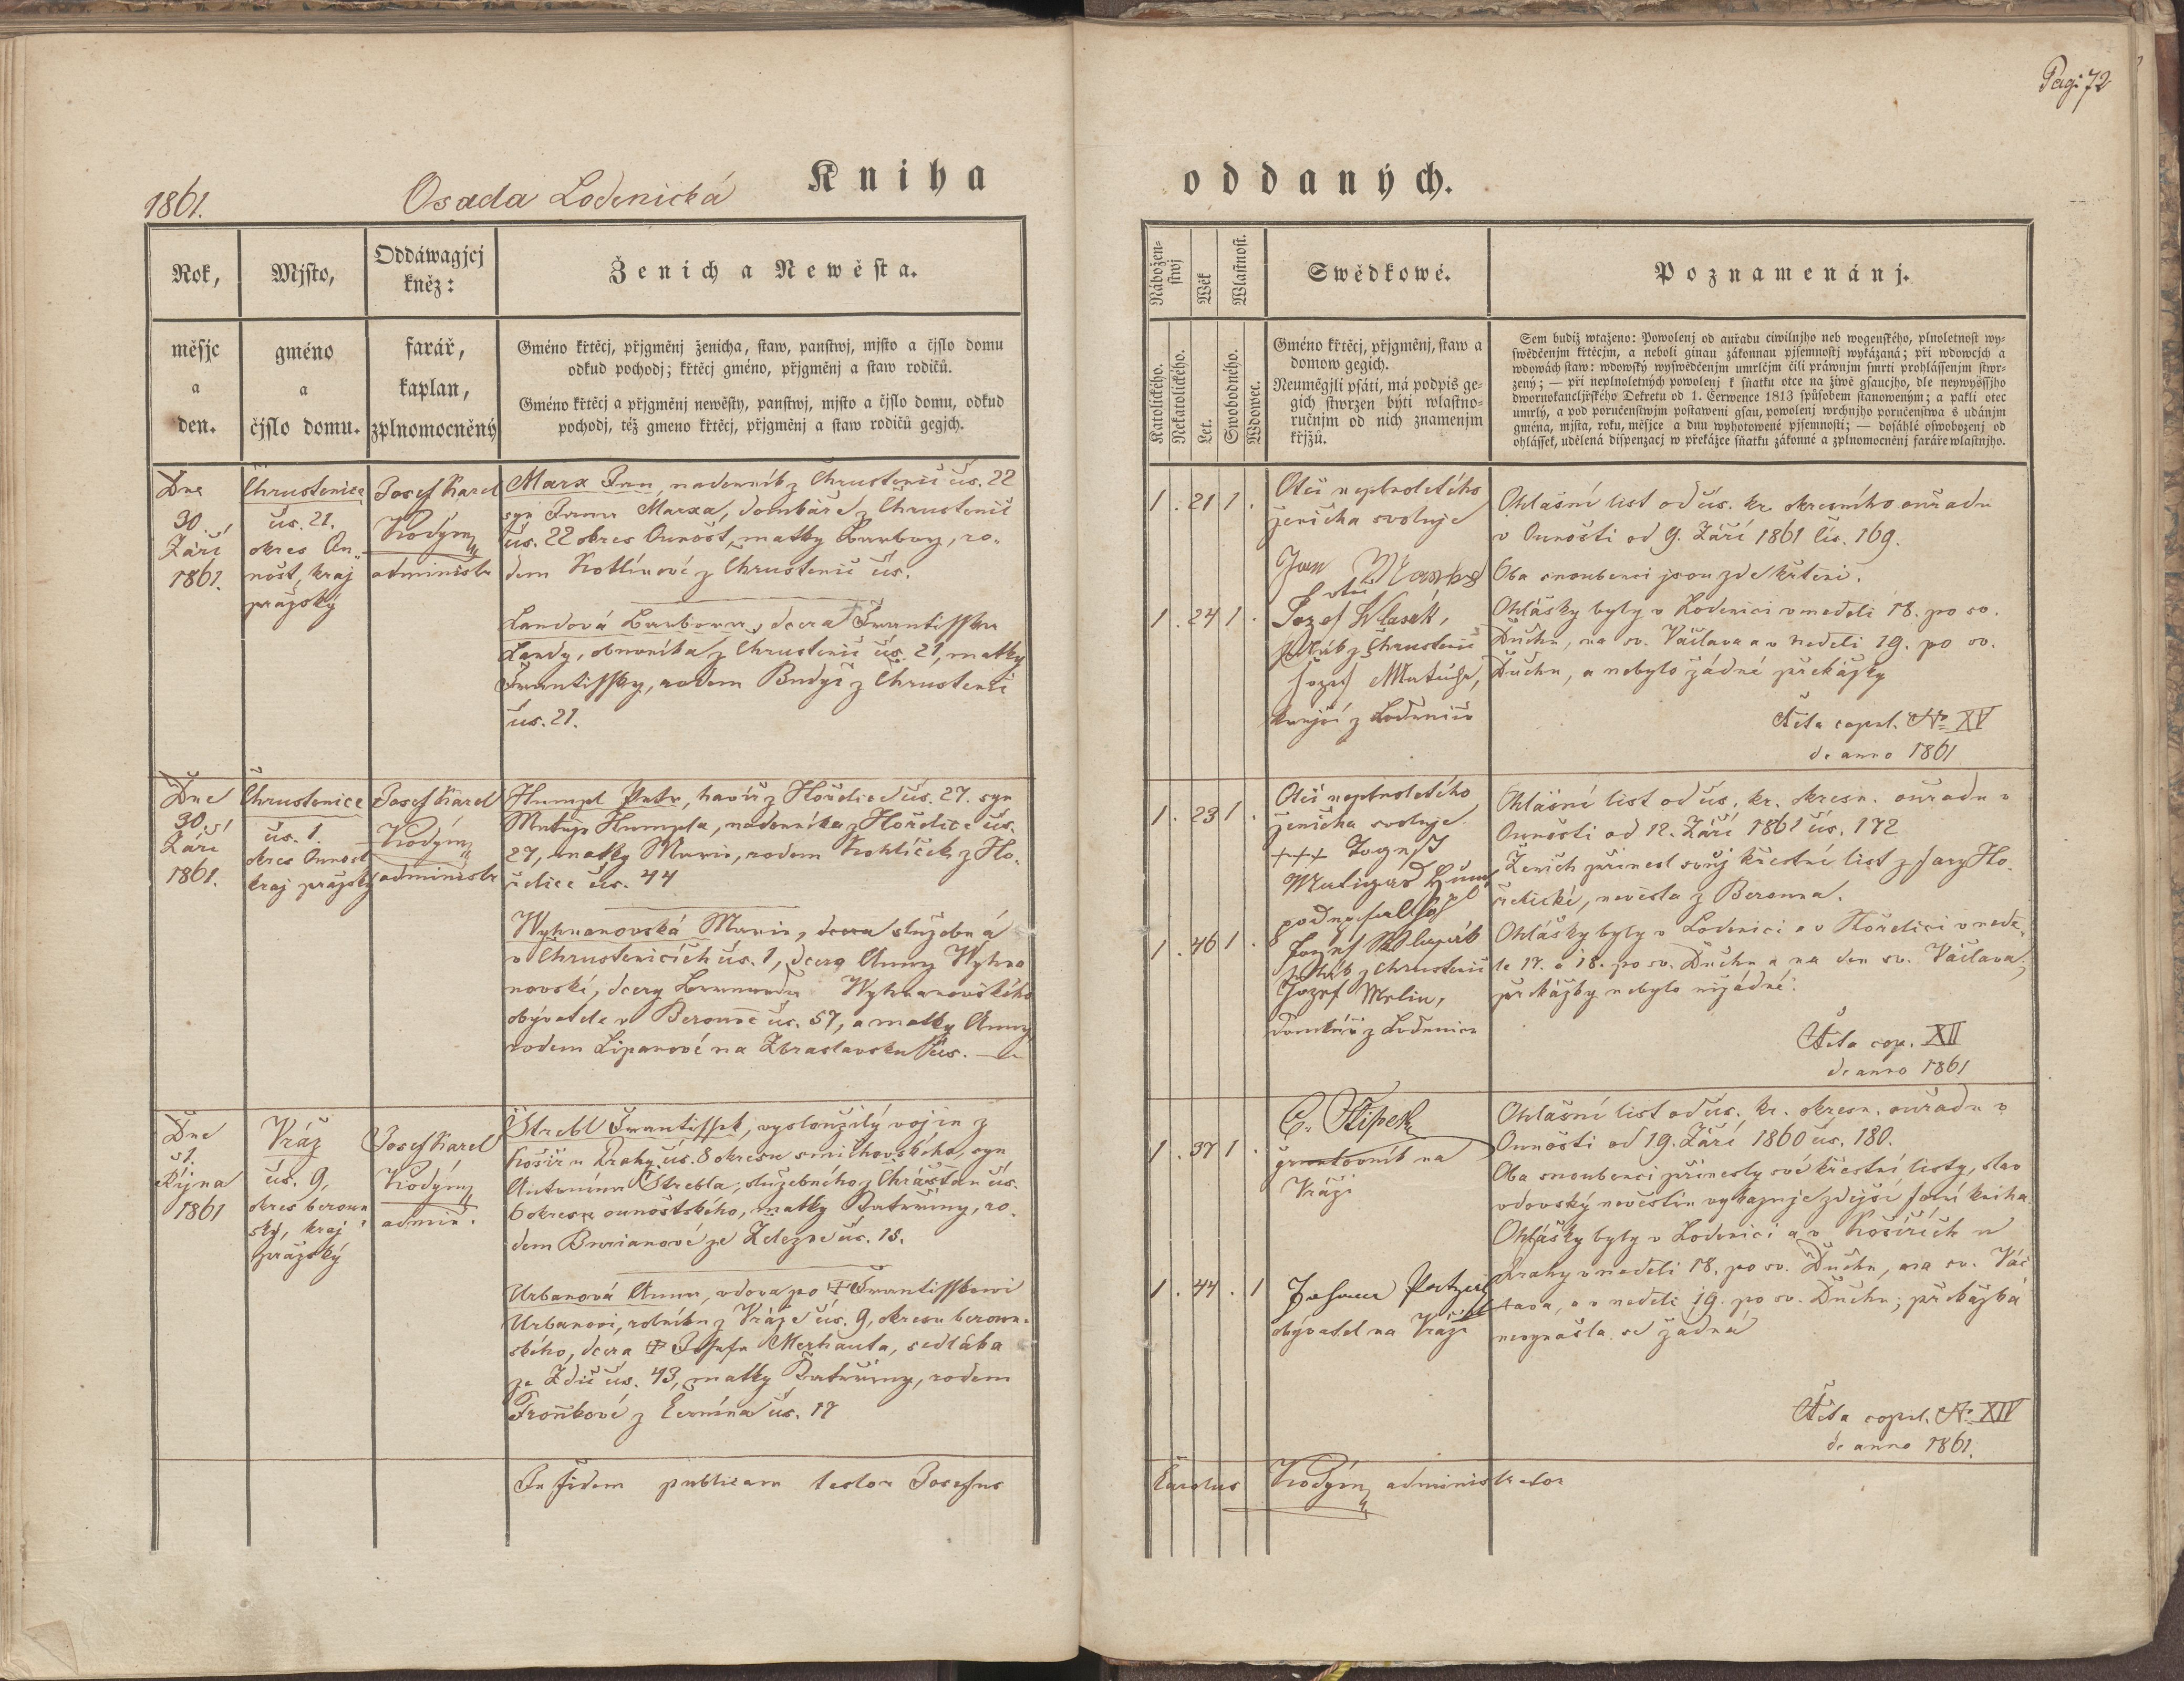 Pag: 72
1861.
Osada Lodenická
Kniha
oddaných.
Rok,
měsjc
a
den.
Mjsto,
gméno
a
čjslo domu.
Oddáwagjcj
kněz:
farář,
kaplan,
zplnomocněný
Ženich a Newěsta.
Gméno křtěcj, přjgměnj ženicha, staw, panstwj, mjsto a čjslo domu
odkud pochodj; křtěcj gméno, přjgměnj a staw rodičů.
Gméno křtěcj a přjgměnj newěsty, panstwj, mjsto a čjslo domu, odkud
pochodj, též gmeno křtěcj, přjgměnj a staw rodičů gegjch.
Nábožen-
stwj
Katolického.
Nekatolického.
Wěk
Let.
Wlastnost.
Swobodného.
Wdowec.
Swědkowé.
Gméno křtěcj, přjgměnj, staw a
domow gegich.
Neuměgjli psáti, má podpis ge-
gich stwrzen býti wlastno-
ručnjm od nich znamenjm
křjžů.
Poznamenánj.
Sem budiž wtaženo: Powolenj od auřadu ciwilnjho neb wogenského, plnoletnost wy-
swědčenjm křtěcjm, a neboli ginau zákonnau pjsemnostj wykázaná; při wdowcjch a
wdowách staw: wdowský wyswědčenjm umrlčjm čili práwnjm smrti prohlássenjm stwr-
zený; — při neplnoletných powolenj k sňatku otce na žiwě gsaucjho, dle neywyššjho
dwornokancljřského Dekretu od 1. Čerwence 1813 spůsobem stanoweným; a pakli otec
umrlý, a pod poručenstwjm postaweni gsau, powolenj wrchnjho poručenstwa s udánjm
gména, mjsta, roku, měsjce a dnu wyhotowené pjsemnosti; — dosáhlé oswobozenj od
ohlássek, udělená dispenzacj w překážce sňatku zákonné a zplnomocněnj faráře wlastnjho.
Dne
30.
Září
1861.
Chrustenice
čís. 21.
okres Un-
hošt, kraj
pražský
Josef Karel
Kodým
administr
Marx Jan, nadenník z Chrustenic čís. 22
syn Jana Marxa, domkáře z Chrustenic
čís. 22 okres Ounošt, matky Barbory, ro-
dem Kotlínové z Chrustenic čís.
Landová Barbora, dcera Frantisska
Landy, obuvníka z Chrustenic čís. 21, matky
Frantissky, rodem z Chrustenic
čís. 21.
1 . 21 1 .
1 . 24 1 .
Otec neplnoletého
ženicha svoluje
Jan
otec
Jozef Klasek,
z Chrustenic
Jozef
krejčí z Lodenic
Ohlašní list od čís. kr. okresního ouřadu
v Ounošti od 9. Září 1861 čís. 169.
Oba snoubenci jsou zde křtěni.
Ohlášky byly v Lodenici v neděli 18. po sv.
Duchu, na sv. Václava a v neděli 19. po sv.
Duchu, a nebylo žádné překážky
Acta copul. No XV
de anno 1861
Dne
30.
Září
1861.
Chrustenice
čís. 1.
okres Ounošt
kraj pražský
Josef Karel
Kodým
administr
Humpl Petr, havíř z Hořelice čís. 27. syn
Matěje Humpla, nadenníka z Hořelice čís.
27, matky Marie, rodem Kohlíček z Ho-
řelice čís. 44
Wyhnanovská Marie, dcera služebná
v Chrustenicích čís. 1, dcera Anny Wyhna
novské, dcery Wyhnanovského
obývatele v Berouně čís. 57, a matky Anny,
rodem Lipanové na Zbraslavsku čís. —
1 . 23 1 .
1 . 46 1 .
Otec neplnoletého
ženicha svoluje
+++
Jozef
z Chrustenic
Jozef Melin,
domkář z Lodenic
Ohlášní list od čís. kr. okresn. ouřadu v
Ounošti od 12. Září 1861 čís. 172
Ženich přinesl svůj křestní list z fary Ho-
řelické, nevěsta z Berouna.
Ohlášky byly v Lodenici a v Hořelici v nedě-
le 17. a 18. po sv. Duchu a na den sv. Václava;
překážky nebylo nijádné.
Acta cop. XII
de anno 1861
Dne
1.
Října
1861
Vráž
čís. 9,
okres beroun
ský, kraj
pražský
Josef Karel
Kodým
admin.
Strebl Frantissek, vysloužilý vojín z
Košíř u Prahy čís. 8 okresu smíchovského, syn
Antonína Strebla, služebného z Chrášťan čís.
6 okresu ounoštského, matky Kateřiny, ro-
dem Burianové ze Železné čís. 18.
Urbanová Anna, vdova po + Frantisskovi
Urbanovi, rolníku z Vráže čís. 9, okresu beroun-
ského, dcera + Josefa Merhauta, sedláka
ze Zdic čís. 43, matky Kateřiny, rodem
Froňkové z Černína čís. 17
1 . 37 1 .
1 . 44 . 1
Štípek
gruntovník na
Vráži
Johann
obývatel na Vráži
Ohlašní list od čís. kr. okresn. ouřadu v
Ounošti od 19. Září 1860 čís. 180.
Oba snoubenci přinesly své křestní listy, stav
vdovský nevěstin vykazuje zdejší farní kniha.
Ohlášky byly v Lodenici a v Košířích u
Prahy v neděli 18. po sv. Duchu, na sv. Vác
lava, a v neděli 19. po sv. Duchu; překážka
nevynašla se žádná
Acta copul. No XIV
de anno 1861.
In fidem publicam testor Josephus
Carolus Kodým administrator